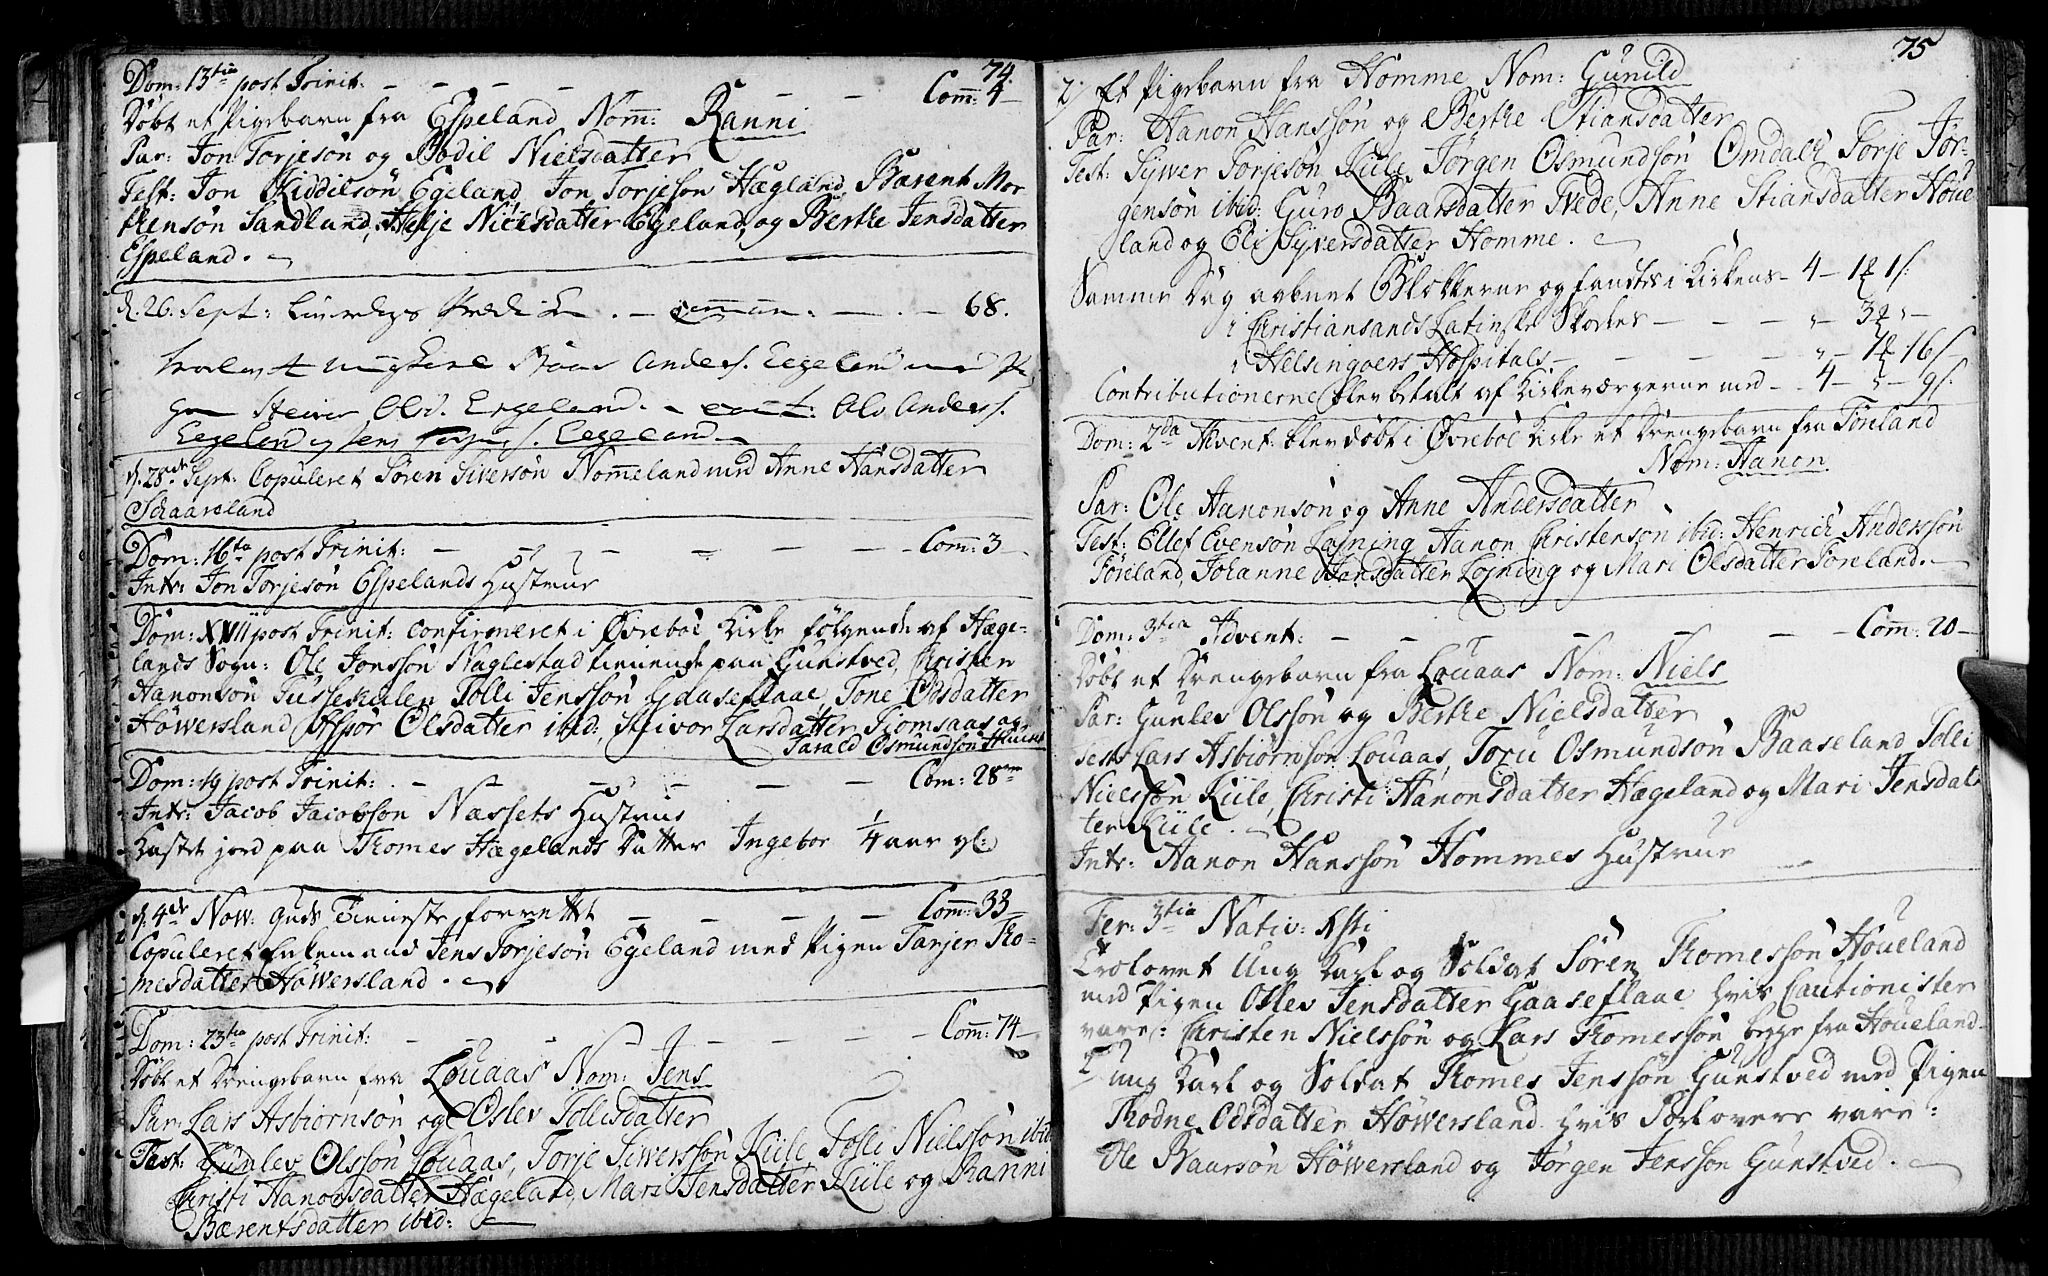 74.
Dom: 13tia post Trinit: — — — — — — Com̅: 4 —
Döbt et Pigebarn fra Espeland Nom̅: Ranni
Par: Jon Torjesön og Bodil Nielsdatter
Test: Jon Kiddilsön Egeland, Jon Torjesön Hægland, Bærent Mor-
tensön Sandland, Helje Nielsdatter Egeland, og Berthe Jensdatter
Espeland.
d. 26. Sept: — 68.
Anders. Egeland
Olsd. Egeland. Ole Anders.
Egeland og Jens Egeland
d. 28de Sept: Copuleret Sören Siversön Nomeland med Anne Hansdatter
Schaareland
Dom: 16ta post Trinit: — — — — — Com̅: 3
Intr: Jon Torjesön Espelands Hustrue
Dom: XVII post Trinit: confirmeret i Øvreböe Kirke fölgende af Hæge-
lands Sogn: Ole Jonssön Naglestad tienende paa Gunstved, Christen
Aanonsön Tussekulen, Tolli Jenssön Gaaseflaae, Tone Odsdatter
Höwersland, Aspor Olsdatter ibid:, Sthivor Larsdatter Romsaas og
Tarald Osmundsön
Dom: 19 post Trinit: — — — — — Com: 28
Intr: Jacob Jacobsson Næssets Hustrue
Kastet jord paa Thomes Hægelands Datter Ingebor 1/4 aar gl:
d. 4de Now: Guds Tieneste forrettet — — — — Com̅: 33
Copuleret Enkemand Jens Torjesön Egeland med Pigen Tarjer Tho-
mesdatter Höwersland.
Dom: 23tia post Trinit: — — — — — Com̅: 74 —
Döbt et Drengebarn fra Louaas Nom: Jens
Par: Lars Asbiörnsön og Oslev Tollisdatter
Test: Gunlev Olssön Louaas, Torje Siwerssön Kiile, Tolli Nielssön ibid:
Christi Aanonsdatter Hægeland, Mari Jensdatter Kiile og Ranni
Bærentsdatter ibid:
75
2) Et Pigebarn fra Homme Nom: Gunild
Par: Aanon Hanssön og Berthe Stiansdatter
Test: Sywer Torjesön Kiile, Jörgen Osmundsön Omdal, Torje Jör-
gensön ibid: Guro Baarsdatter Tvede, Anne Stiansdatter Houe-
land og Eli Syversdatter Homme.
Samme Dag aabnet Blokkerne og fandtes i Kirkens — 4 — 1 1 s:
i Christiansands Latinske Skoeles — — — „ — 3 „ —
i Helsingoers Hospitals — — — — „ — 1 16 s
Contributionerne blev betalt af Kirkeværgerne med — 4 — „ — 9 s.
Dom: 2da Advent: blev döbt i Øvreböe Kirke et Drengebarn fra Föreland
Nom: Aanon
Par: Ole Aanonsön og Anne Andersdatter
Test: Ellef Evensön Löjning, Aanon Christensön ibid: Henrich Anderssön
Föreland, Johanne Jensdatter Löjning og Mari Olsdatter Föreland.
Dom: 3tia Advent: — — — — — Com̅: 20 —
Döbt et Drengebarn fra Louaas Nom: Niels
Par: Gunlev Olssön og Berthe Nielsdatter
Test: Lars Asbiörnsön Louaas, Toru Osmundsön Baaseland, Tolli
Nielssön Kiile, Christi Aanonsdatter Hægeland og Mari Jensdat-
ter Kiile.
Intr: Aanon Hanssön Hommes Hustrue
Fer: 3tia Nativ: Xsti
Trolovet Ung Karl og Soldat Sören Thomessön Höueland
med Pigen Oslev Jensdatter Gaaseflaae hvis Cautionister
vare: Christen Nielssön og Lars Thomessön begge fra Höueland
2) Ung Karl og Soldat Thomes Jenssön Gunstved med Pigen
Thodne Odsdatter Höwersland hvis Forlovere vare:
Ole Baarsön Höwersland og Jörgen Jenssön Gunstved.